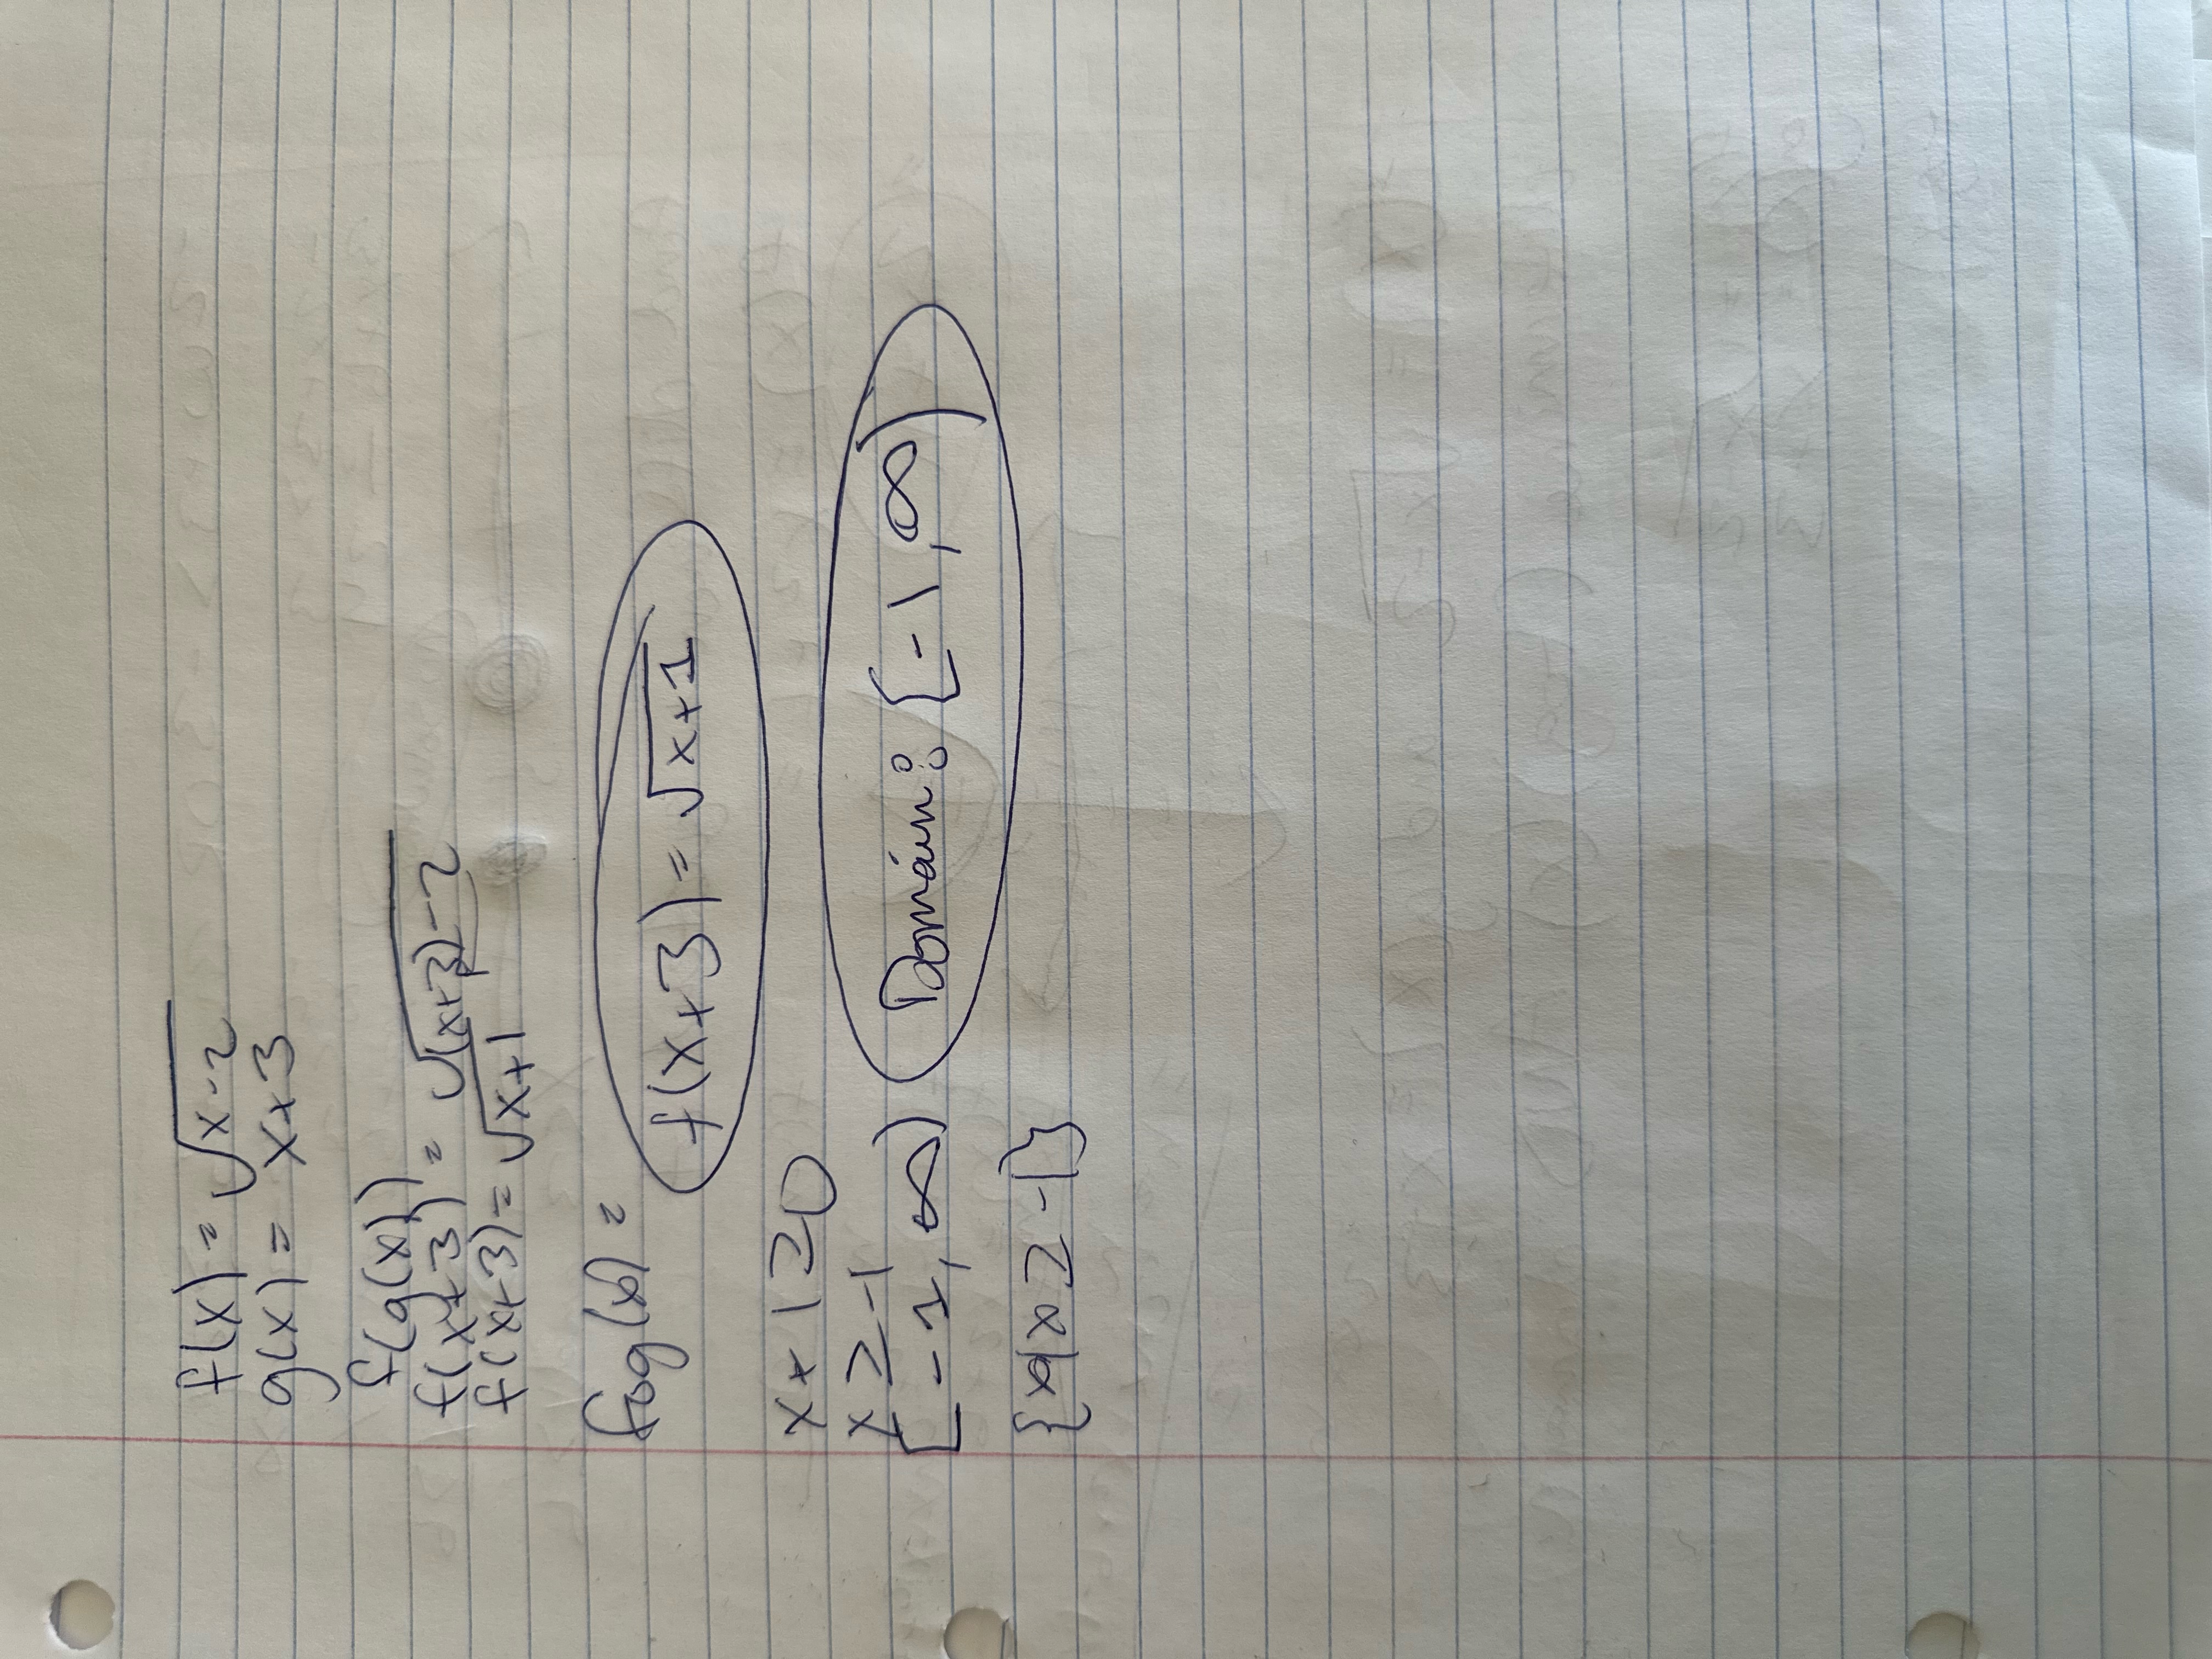 f(x) = √x-2
g(x) = x+3
f(g(x))
f(x+3) = √(x+3)-2
f(x+3) = √x+1
fog(x) =
f(x+3) = √x+1
x+1≥0
x≥-1
[-1,∞)
Domain: [-1,∞)
{x|x≥-1}